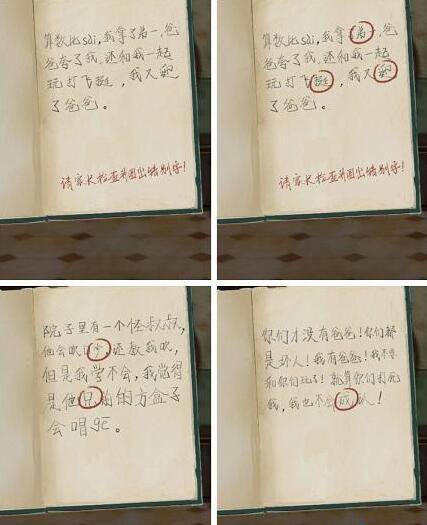 算数比sài,我拿了弟一,爸
爸夸了我,还和我一起
玩打飞挺,我太
了爸爸。
请家长检查并圈出错别字!
算数比sài,我拿了弟一,爸
爸夸了我,还和我一起
玩打飞挺,我太
了爸爸。
请家长检查并圈出错别字!
院子里有一个怪叔叔,
他会吹口今,还教我吹,
但是我学不会,我觉得
是他兄前的方盒子
会唱gē。
你们才没有爸爸!你们都
是坏人!我有爸爸!我不要
和你们玩了!就算你们打死
我,我也不会 人!